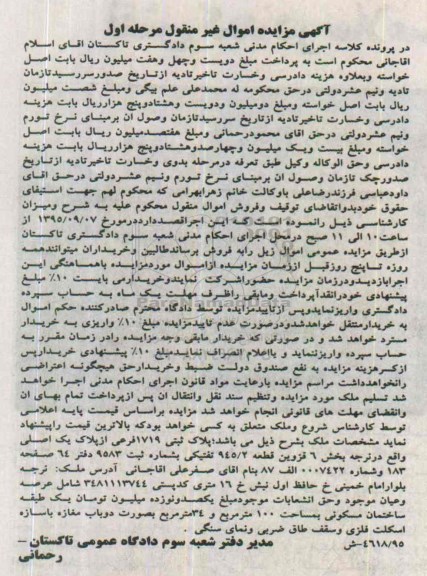 آگهی مزایده اموال غیر منقول مرحله اول
در پرونده کلاسه اجرای احکام مدنی شعبه سوم دادگستری تاکستان اقای اسلام
اقاجانی محکوم است به پرداخت مبلغ دویست وچهل وهفت میلیون ریال بابت اصل
خواسته وبعلاوه هزینه دادرسی وخسارت تاخیرتادیه ازتاریخ صدورسررسیدتازمان
تادیه ونیم عشردولتی درحق محکومه له محمدعلی علم بیگی ومبلغ شصت میلیون
ریال بابت اصل خواسته ومبلغ دومیلیون ودویست وهشتادوپنج هزارریال بابت هزینه
دادرسی وخسارت تاخیرتادیه ازتاریخ سررسیدتازمان وصول ان برمبنای نرخ تورم
ونیم عشردولتی درحق اقای محمودرحمانی ومبلغ هفتصدمیلیون ریال بابت اصل
خواسته ومبلغ بیست ویک میلیون وچهارصدوهشتادوپنج هزارریال بابت هزینه
دادرسی وحق الوکاله وکیل طبق تعرفه درمرحله بدوی وخسارت تاخیرتادیه ازتاریخ
صدورچک تازمان وصول ان برمبنای نرخ تورم ونیم عشردولتی درحق اقای
داودعباسی فرزندرضاعلی باوکالت خانم زهرابهرامی که محکوم لهم جهت استیفای
حقوق خودبدواتقاضای توقیف وفروش اموال منقول محکوم علیه به شرح ومیزان
کارشناسی ذیل رانموده است که این اجراقصدداردرمورخ ۱۳۹۵/۰۹/۰۷ از
ساعت۱۰ الی ۱۱ صبح درمحل اجرای احکام مدنی شعبه سوم دادگستری تاکستان
ازطریق مزایده عمومی اموال زیل رابه فروش برساندطالبین وخریداران میتوانندهمه
روزه تاپنج روزقبل اززمان مزایده ازاموال موردمزایده باهماهنگی این
اجرابازدیدودرزمان مزایده حضوراشرکت نمایندوخریدارمی بایست ۱۰٪ مبلغ
پیشنهادی خودرانقداًپرداخت ومابقی راظرف مهلت یک ماه به حساب سپرده
دادگستری واریزنمایدوپس ازتاییدمزایده توسط دادگاه محترم صادرکننده حکم اموال
به خریدارمنتقل خواهدشدودرصورت عدم تاییدمزایده مبلغ ۱۰٪ واریزی به خریدار
مسترد خواهد شد و در صورتی که خریدار مابقی وجه مزایده رادر زمان مقرر به
حساب سپرده واریزننماید و یااعلام انصراف نمایدمبلغ ۱۰٪ پیشنهادی خریدارپس
ازکسرهزینه مزایده به نفع صندوق دولت ضبط وخریدارحق هیچگونه اعتراضی
رانخواهدداشت مراسم مزایده بارعایت مواد قانون اجرای احکام مدنی اجرا خواهد
شد تسلیم ملک مورد مزایده وتنظیم سند نقل وانتقال ان پس ازپرداخت تمام بهای ان
وانقضای مهلت های قانونی انجام خواهد شد مزایده براساس قیمت پایه اعلامی
توسط کارشناس شروع وملک متعلق به کسی خواهد بودکه بالاترین قیمت راپیشنهاد
نماید مشخصات ملک بشرح ذیل می باشد؛پلاک ثبتی ۱۷۱۹فرعی ازپلاک یک اصلی
واقع درنرجه بخش ۶ قزوین قطعه ۹۴۵/۲ تفتیکی بشماره ثبت ۹۵۸۳ دفتر ۶۴ صفحه
۱۸۳ وشماره ۰۰۰۷۴۲۲ الف ۸۷ بنام اقای صفرعلی اقاجانی آدرس ملک: نرجه
بلوارامام خمینی خ حافظ اول نبش خ ۱۶ متری کدپستی ۳۴۸۱۱۱۳۷۴۴ شامل عرصه
وعیان موجود وحق انشعابات موجودمبلغ یکصدونوزده میلیون تومان یک طبقه
ساختمان مسکونی بمساحت ۱۰۰ مترمربع و ۳۴مترمربع بصورت دوباب مغازه باسازه
اسکلت فلزی وسقف طاق ضربی ونمای سنگی .
۴۶۱۸/۹۵-ش مدیر دفتر شعبه سوم دادگاه عمومی تاکستان –
رحمانی